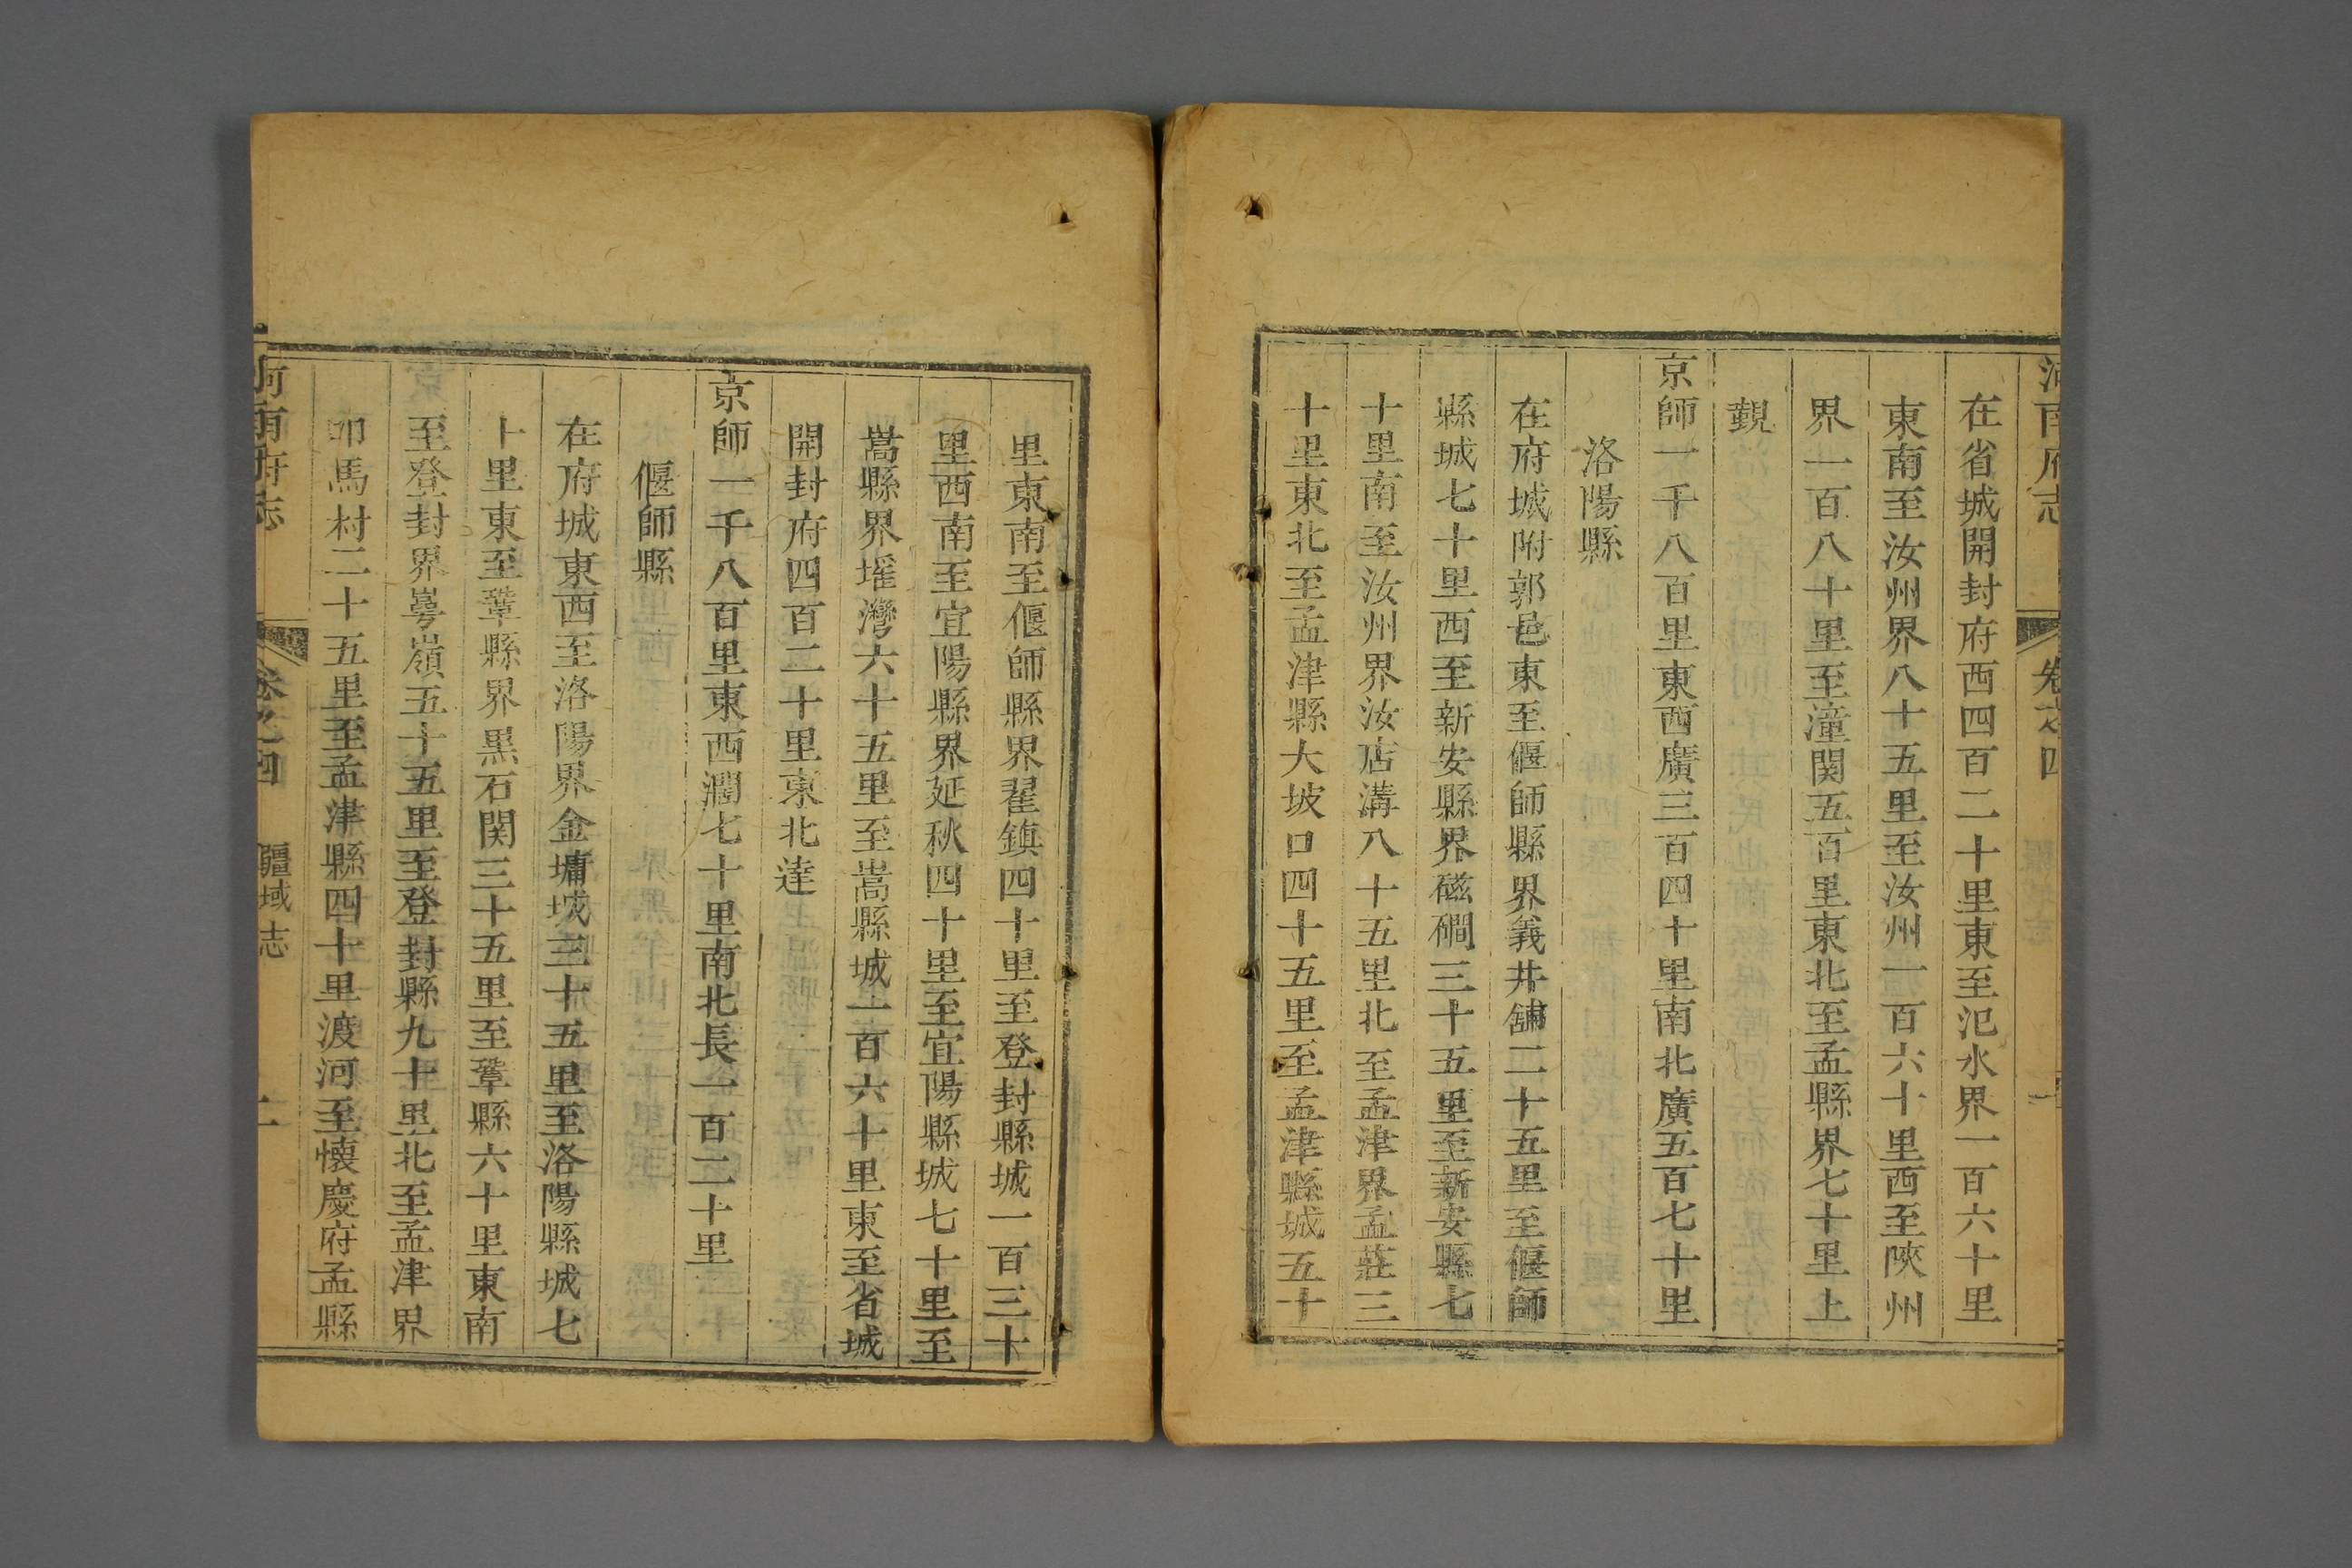 河南府志 卷之四 一
在省城開封府西四百二十里東至汜水界一百六十里
東南至汝州界八十五里至汝州一百六十里西至陝州
界一百八十里至潼関五百里東北至孟縣界七十里上
覲
京師一千八百里東西廣三百四十里南北廣五百七十里
洛陽縣
在府城附郭邑東至偃師縣界義井舖二十五里至偃師
縣城七十里西至新安縣界磁磵三十五里至新安縣七
十里南至汝州界汝店溝八十五里北至孟津界孟莊三
十里東北至孟津縣大坡口四十五里至孟津縣城五十
里東南至偃師縣界翟鎮四十里至登封縣城一百三十
里西南至宜陽縣界延秋四十里至宜陽縣城七十里至
嵩縣界㙘灣六十五里至嵩縣城一百六十里東至省城
開封府四百二十里東北達
京師一千八百里東西濶七十里南北長一百二十里
偃師縣
在府城東西至洛陽界金墉城三十五里至洛陽縣城七
十里東至鞏縣界黒石関三十五里至鞏縣六十里東南
至登封界崿嶺五十五里至登封縣九十里北至孟津界
卯馬村二十五里至孟津縣四十里渡河至懷慶府孟縣
河南府志 卷之四 疆域志 二